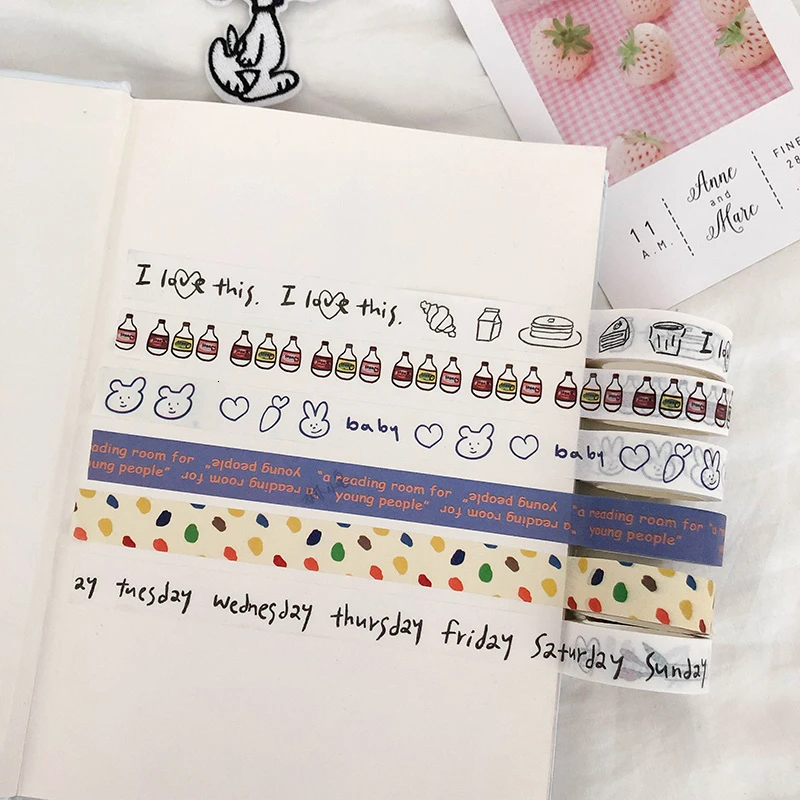 11
A.M.
Anne
and
Marc
FINE
28
I love this. I love this. I lo
baby baby
ading room for "a reading room for young people" "a reading room for young people" "a reading room for "a
ung people" "a reading room for young people" "a reading room for young people" "a young people"
ay tuesday wednesday thursday friday Saturday Sunday